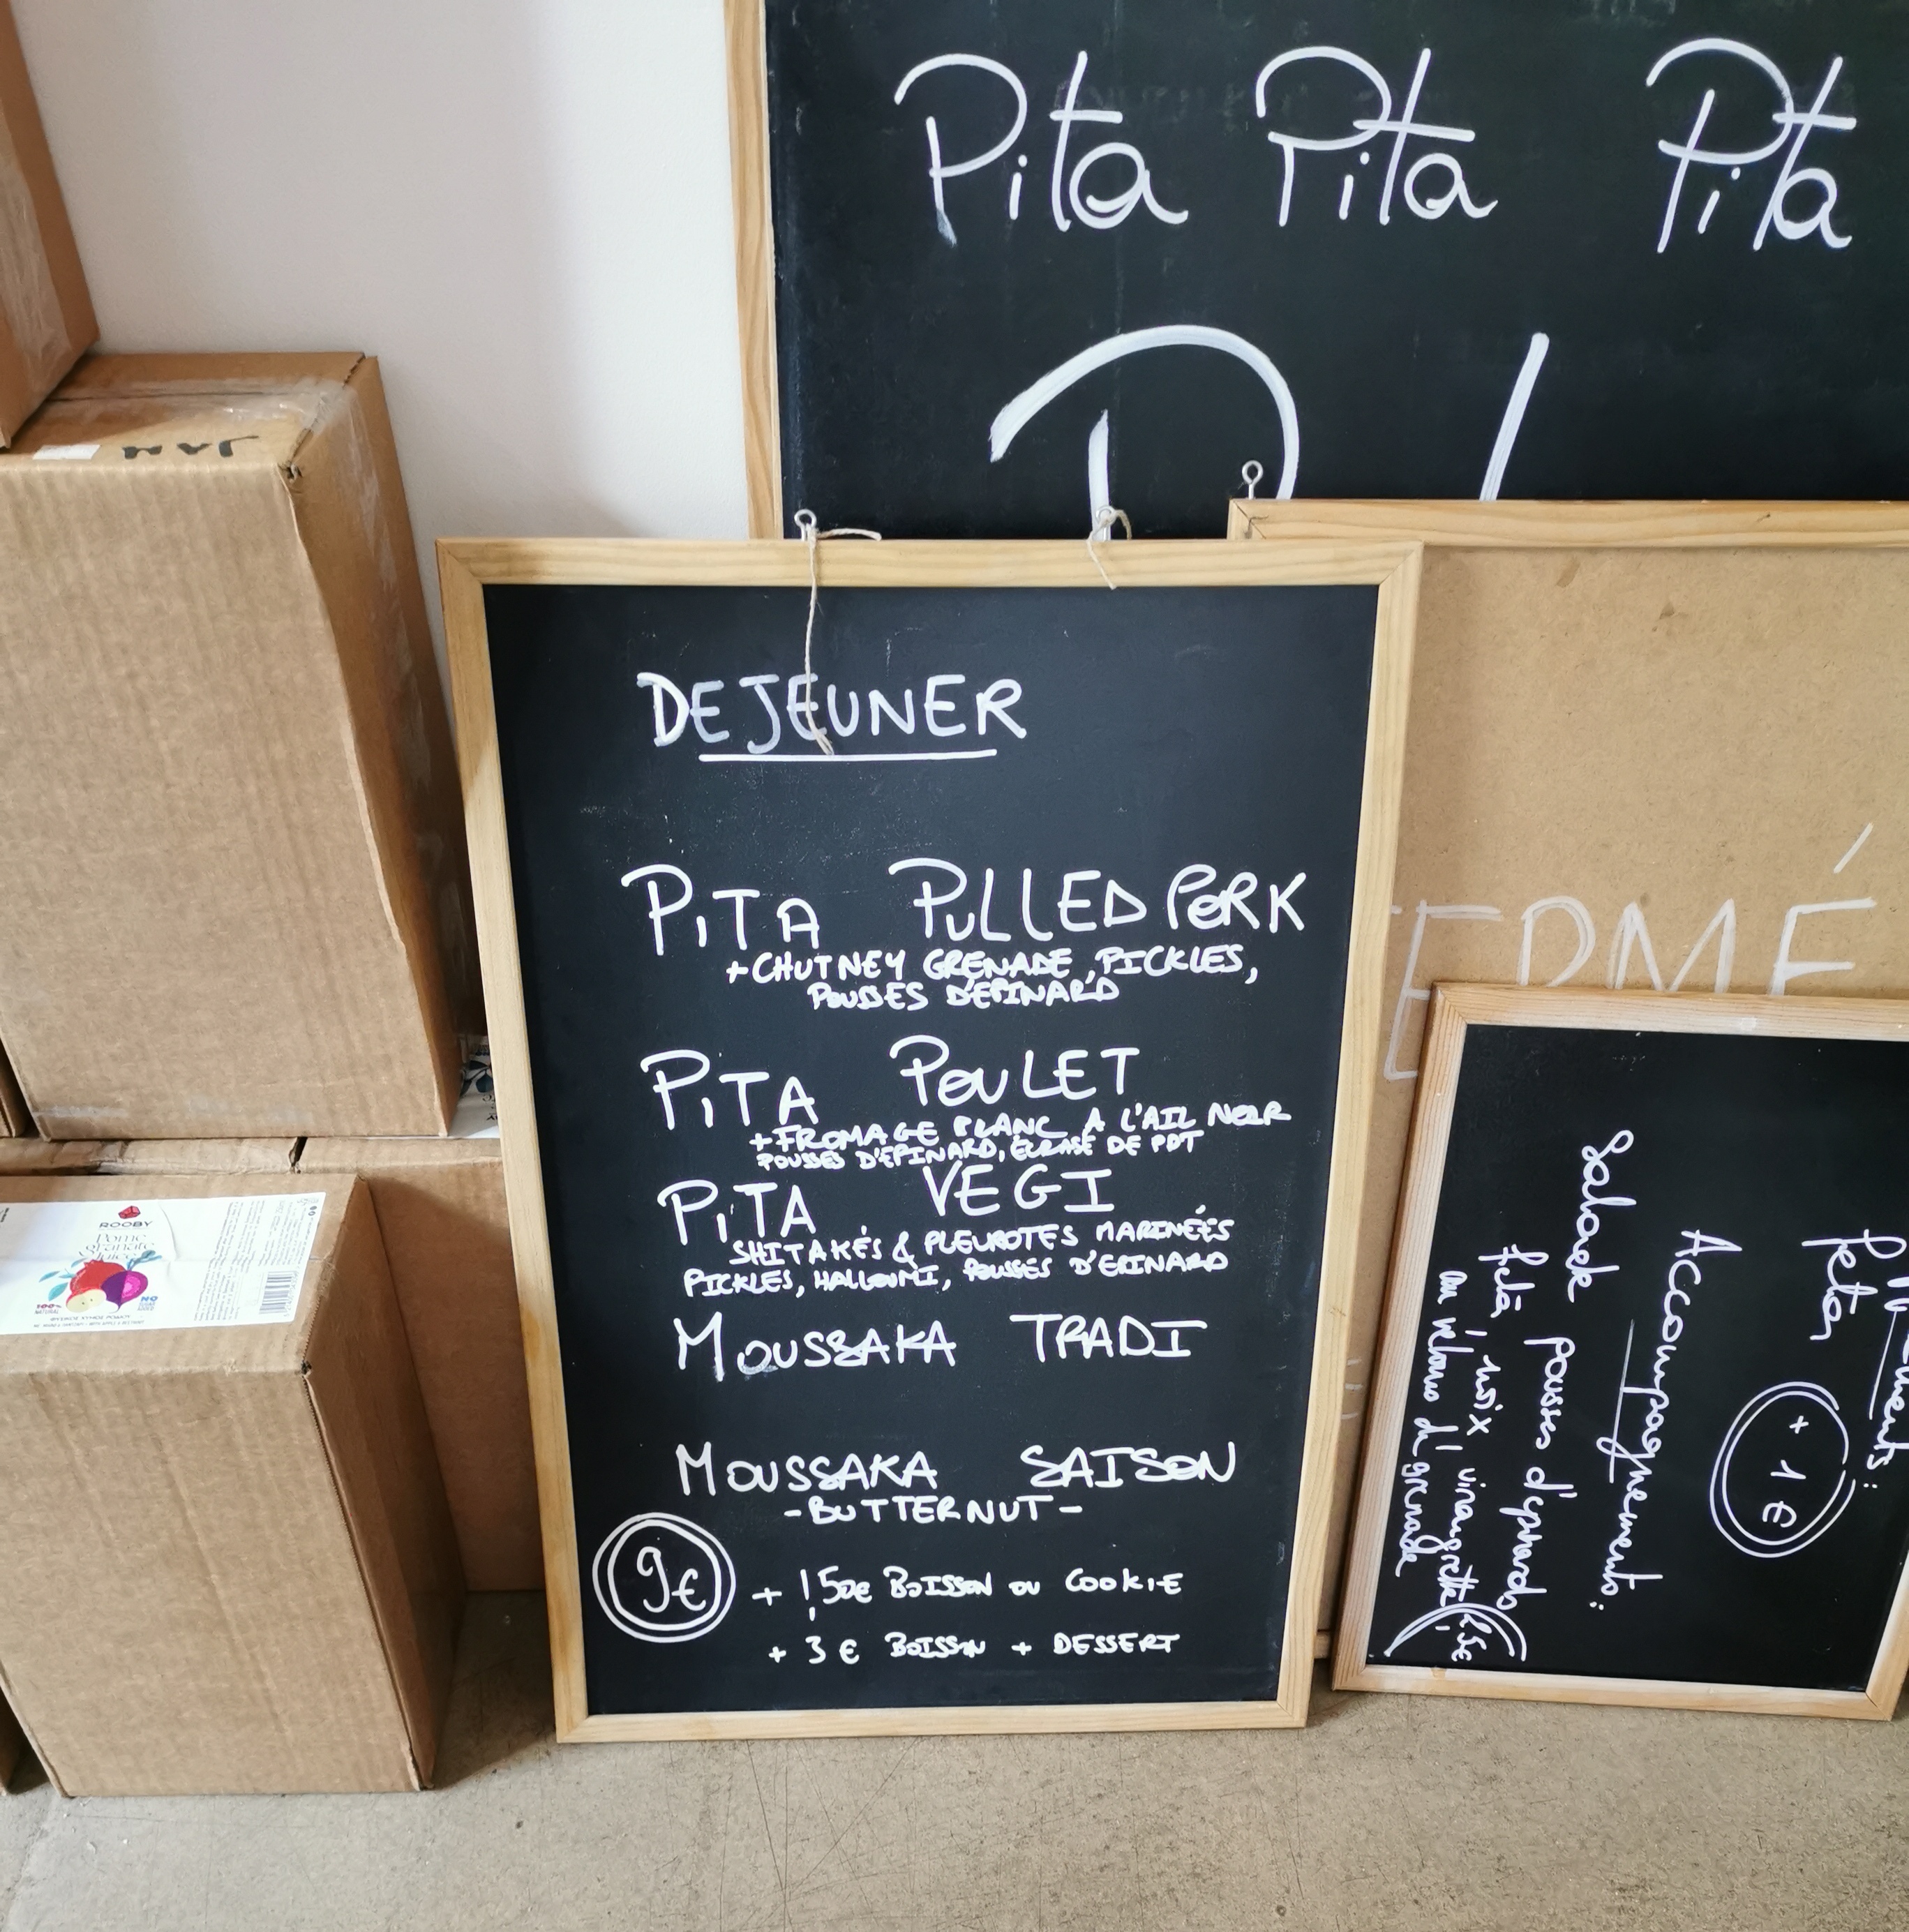 Pita Pita Pita
DEJEUNER
PITA PULLED PORK
+CHUTNEY GRENADE, PICKLES,
POUSSES D'EPINARD
PITA POULET
+FROMAGE BLANC A L'AIL NOIR
POUSSES D'EPINARD, ECRASÉ DE PDT
PITA VEGI
SHITAKÉS & PLEUROTES MARINÉES
PICKLES, HALLOUMI, POUSSES D'EPINARD
MOUSSAKA TRADI
MOUSSAKA SAISON
-BUTTERNUT-
9€ + 1,50€ BOISSON OU COOKIE
+ 3€ BOISSON + DESSERT
ERMÉ
feta
+ 1€
Accompagnements:
Salade pousses d'épinards
feta, noix vinaigrette
grenade
JAN
ROOBY
Pome
granate
Juice
100%
NATURAL
NO
SUGAR
ADDED